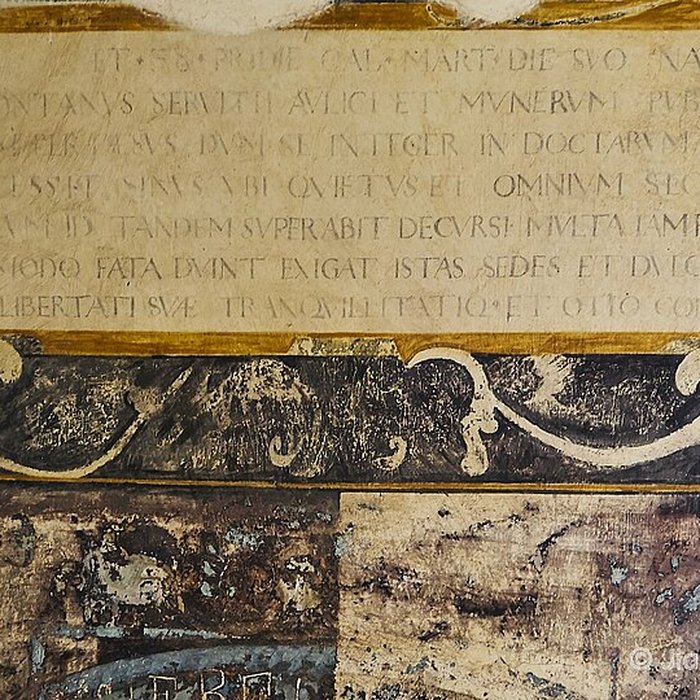 ET · 38 · PRIDIE CAL · MART · DIE SVO NA
ONTANVS SERVITII AVLICI ET MVNERVM PVB
SVS DVM SE INTEGER IN DOCTARVM
SINVS VBI QVIETVS ET OMNIVM SEC
VM ID TANDEM SVPERABIT DECVRSI MVLTA IAM P
MODO FATA DVINT EXIGAT ISTAS SEDES ET DVLC
LIBERTATI SVÆ TRANQVILLITATIQ · ET OTIO CO
© Jia